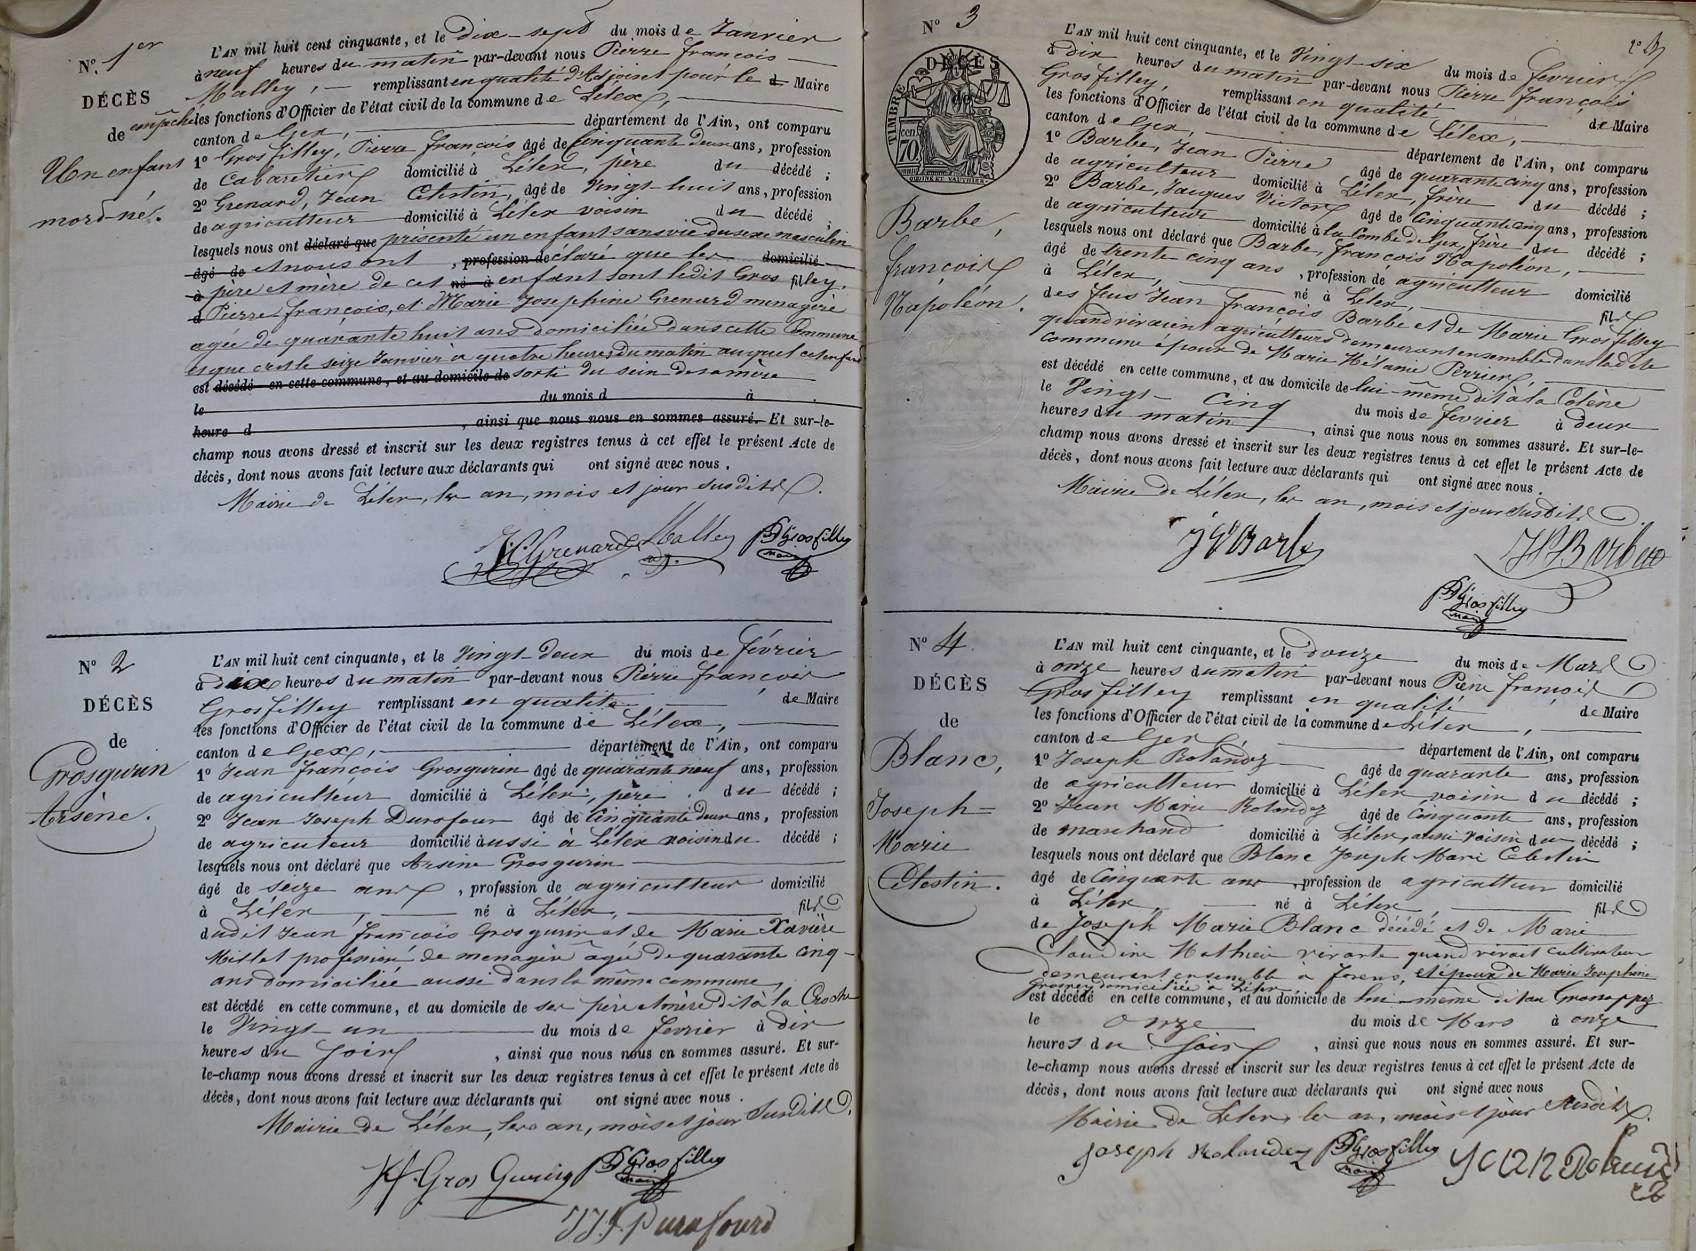 N° 1er
DÉCÈS
de
Un enfant
mort-né.
L'AN mil huit cent cinquante, et le dix-sept du mois de Janvier
à neuf heures du matin par-devant nous Pierre françois
Malley, remplissant en qualité d'Adjoint pour le d Maire
empêché les fonctions d'Officier de l'état civil de la commune de Lélex,
canton de Gex, département de l'Ain, ont comparu
1° Grosfilley, Pierre françois âgé de Cinquante deux ans, profession
de Cabaretier domicilié à Lélex, père du décédé ;
2° Grenard, Jean Célestin, âgé de Vingt huit ans, profession
de agriculteur domicilié à Lélex voisin du décédé
lesquels nous ont déclaré que présenté un enfant sans vie du sexe masculin
âgé de et nous ont , profession de déclaré que les domicilié
à père et mère de cet né à enfant sont ledit Gros filley,
d Pierre françois, et Marie Josephine Grenard menagère
agée de quarante huit ans domiciliée dans cette Commune
et que c'est le seize Janvier à quatre heures du matin auquel cet enfant
est décédé en cette commune, et au domicile de sorti du sein de sa mère
le du mois d à
heure d , ainsi que nous nous en sommes assuré. Et sur-le-
champ nous avons dressé et inscrit sur les deux registres tenus à cet effet le présent Acte de
décès, dont nous avons fait lecture aux déclarants qui ont signé avec nous.
Mairie de Lélex, les an, mois et jour susdits.
JC Grenard Malley adj. PF Grosfilley maire
N° 2
DÉCÈS
de
Grosgurin
Arsène.
L'AN mil huit cent cinquante, et le Vingt-deux du mois de février
à deux heures du matin par-devant nous Pierre françois
Grosfilley remplissant en qualité de Maire
les fonctions d'Officier de l'état civil de la commune de Lélex,
canton de Gex, département de l'Ain, ont comparu
1° Jean françois Grosgurin âgé de quarante neuf ans, profession
de agriculteur domicilié à Lélex, père du décédé ;
2° Jean Joseph Durafour âgé de Cinquante deux ans, profession
de agriculteur domicilié aussi à Lélex voisin du décédé ;
lesquels nous ont déclaré que Arsène Grosgurin
âgé de seize ans , profession de agriculteur domicilié
à Lélex, né à Lélex, fils
dudit Jean françois Grosgurin et de Marie Xavière
Millet profession de menagère agée de quarante cinq
ans domiciliée aussi dans la même commune,
est décédé en cette commune, et au domicile de ses père et mère dit à la Croche
le Vingt un du mois de février à dix
heures du soir , ainsi que nous nous en sommes assuré. Et sur-
le-champ nous avons dressé et inscrit sur les deux registres tenus à cet effet le présent Acte de
décès, dont nous avons fait lecture aux déclarants qui ont signé avec nous.
Mairie de Lélex, les an, mois et jour Susdits.
JF. Gros Gurin PF Grosfilley maire
JJ. Durafourd
N° 3
DÉCÈS
de
TIMBRE
cen
70
Barbe,
françois
Napoléon.
L'AN mil huit cent cinquante, et le Vingt-six du mois de février
à dix heures du matin par-devant nous Pierre françois
Grosfilley, remplissant en qualité de Maire
les fonctions d'Officier de l'état civil de la commune de Lélex,
canton de Gex, département de l'Ain, ont comparu
1° Barbe, Jean Pierre âgé de quarante cinq ans, profession
de agriculteur domicilié à Lélex, frère du décédé ;
2° Barbe, Jacques Victor âgé de Cinquante cinq ans, profession
de agriculteur domicilié à la Combe de Gex, frère du décédé ;
lesquels nous ont déclaré que Barbe, françois Napoléon,
âgé de trente cinq ans , profession de agriculteur domicilié
à Lélex, né à Lélex fils
des feus Jean françois Barbe et de Marie Grosfilley
quand vivaient agriculteurs demeurant ensemble dans ladite
commune époux de Marie Mélanie Perrier,
est décédé en cette commune, et au domicile de lui-même dit à la
le Vingt-cinq du mois de février à deux
heures du matin , ainsi que nous nous en sommes assuré. Et sur-le-
champ nous avons dressé et inscrit sur les deux registres tenus à cet effet le présent Acte de
décès, dont nous avons fait lecture aux déclarants qui ont signé avec nous.
Mairie de Lélex, les an, mois et jour Susdits
JV Barbe JP Barbe
PF Grosfilley maire
N° 4
DÉCÈS
de
Blanc,
Joseph-
Marie
Célestin.
L'AN mil huit cent cinquante, et le douze du mois de Mars
à onze heures du matin par-devant nous Pierre françois
Grosfilley remplissant en qualité de Maire
les fonctions d'Officier de l'état civil de la commune de Lélex,
canton de Gex, département de l'Ain, ont comparu
1° Joseph Rolandez âgé de quarante ans, profession
de agriculteur domicilié à Lélex, voisin du décédé ;
2° Jean Marie Rolandez âgé de Cinquante ans, profession
de marchand domicilié à Lélex, aussi voisin du décédé ;
lesquels nous ont déclaré que Blanc Joseph Marie Célestin
âgé de Cinquante ans , profession de agriculteur domicilié
à Lélex, né à Lélex, fils
de Joseph Marie Blanc décédé et de Marie
Claudine Mathieu vivante quand vivait cultivateur
demeurant ensemble à Forens, et époux de Marie Josephine
domiciliée à Lélex
est décédé en cette commune, et au domicile de lui-même dit au
le onze du mois de Mars à onze
heures du soir , ainsi que nous nous en sommes assuré. Et sur-
le-champ nous avons dressé et inscrit sur les deux registres tenus à cet effet le présent Acte de
décès, dont nous avons fait lecture aux déclarants qui ont signé avec nous
Mairie de Lélex, les an, mois et jour Susdits.
Joseph Rolandez PF Grosfilley maire